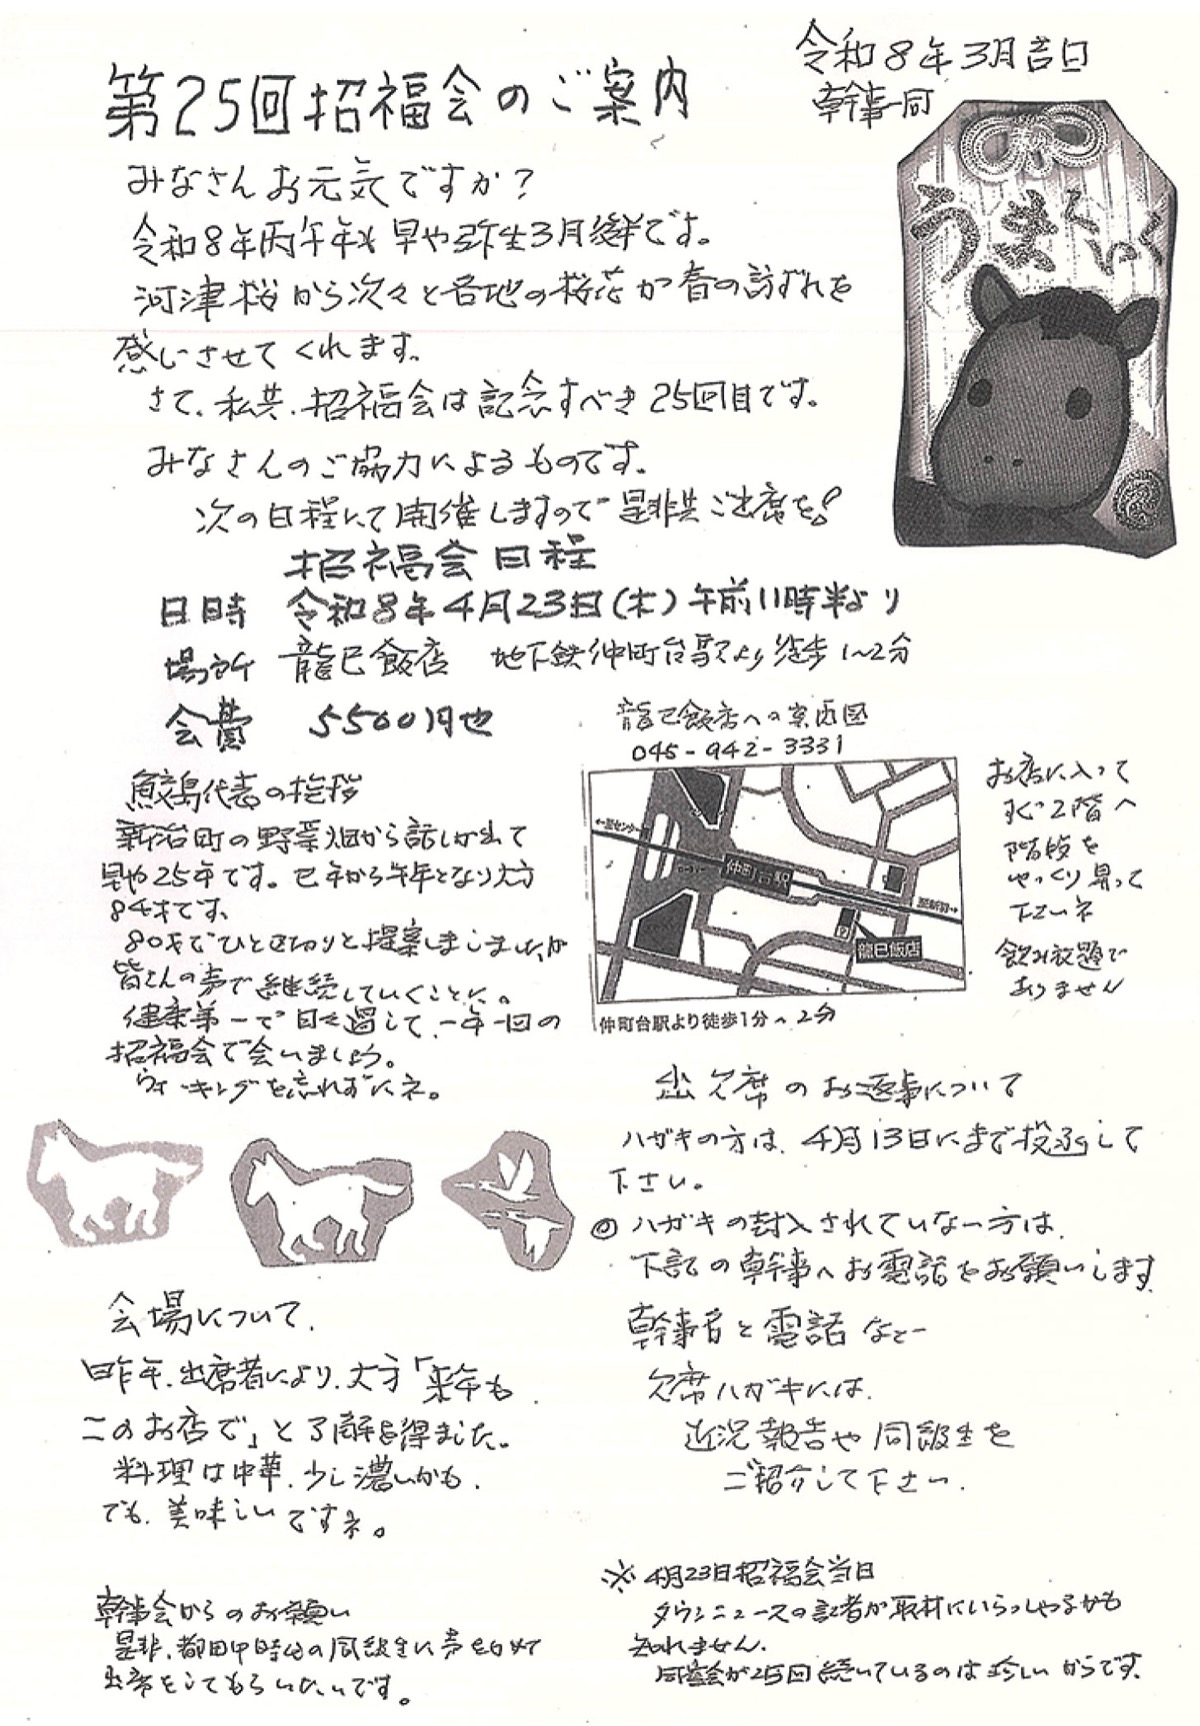 令和8年3月吉日
幹事一同
第25回招福会のご案内
うまくいく
みなさんお元気ですか?
令和8年丙午年も早や弥生3月後半です。
河津桜から次々と各地の桜花が春の訪ずれを
感じさせてくれます。
さて、私共、招福会は記念すべき25回目です。
みなさんのご協力によるものです。
次の日程にて開催しますので是非共ご出席を!
招福会日程
日時 令和8年4月23日(木)午前11時半より
場所 龍巳飯店 地下鉄仲町台駅より徒歩1~2分
会費 5500円也
龍巳飯店への案内図
045-942-3331
←至センター
仲町台駅
至新羽→
龍巳飯店
仲町台駅より徒歩1分~2分
お店に入って
すぐ2階へ
階段を
ゆっくり昇って
下さいネ
飲み放題で
ありません
鮫島代表の挨拶
新治町の野菜畑から話しが出て
早や25年です。巳年から午年となり大方
84才です、
80才でひと区切りと提案しましたが
皆さんの声で継続していくことに。
健康第一で日々過して、一年一回の
招福会で会いましょう。
ウォーキングを忘れずにネ。
出欠席のお返事について
ハガキの方は、4月13日にまで投函して
下さい。
◎ハガキの封入されていない方は、
下記の幹事へお電話をお願いします
幹事名と電話など
欠席ハガキには、
近況報告や同級生を
ご紹介して下さい。
会場について、
昨年、出席者により、大方「来年も
このお店で」と了解を得ました。
料理は中華、少し濃いかも、
でも、美味しいですネ。
幹事会からのお願い
是非、都田中時代の同級生に声を
出席をしてもらいたいです。
※4月23日招福会当日
タウンニュースの記者が取材にいらっしゃるかも
知れません。
同窓会が25回続いているのは珍しいからです。